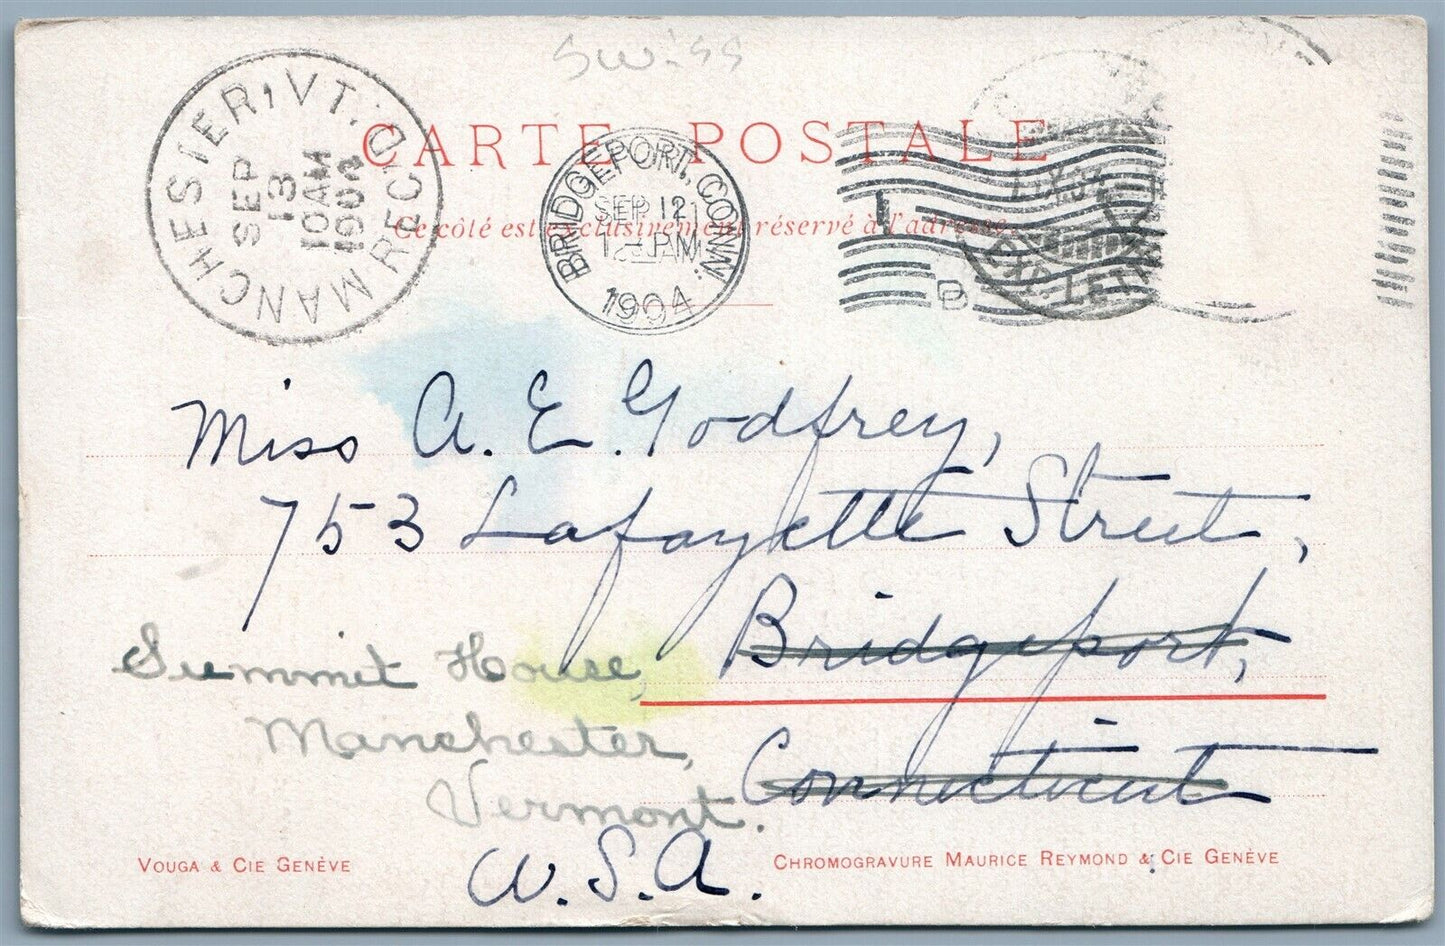 Swiss
CARTE POSTALE
Ce côté est exclusivement réservé à l'adresse.
MANCHESTER, VT. REC'D
SEP
13
10 AM
1904
BRIDGEPORT, CONN.
SEP 12
1904
Miss A. E. Godfrey,
753 Lafayette Street,
Bridgeport,
Connecticut
Summit House,
Manchester,
Vermont.
U.S.A.
VOUGA & CIE GENÈVE
CHROMOGRAVURE MAURICE REYMOND & CIE GENÈVE